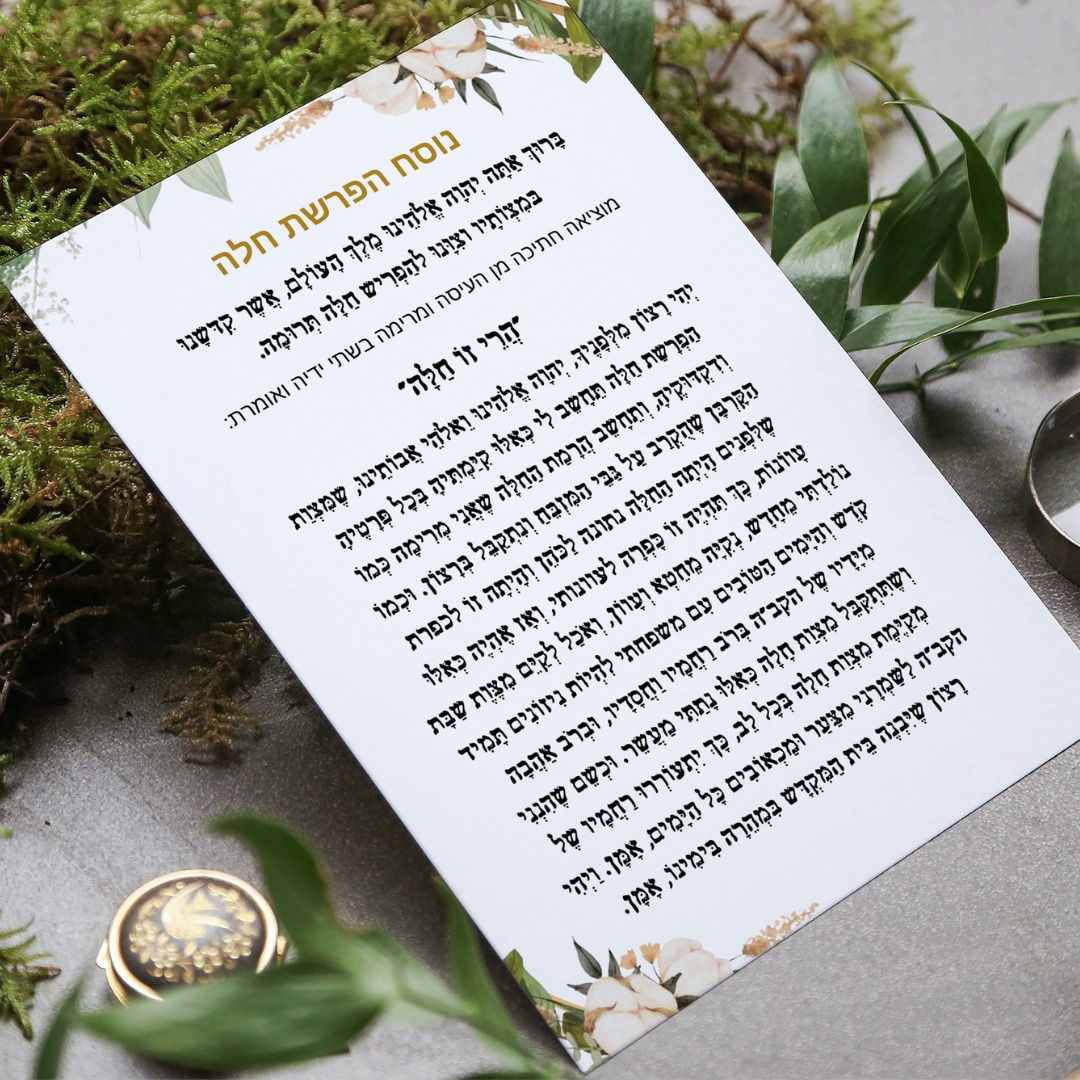 נוסח הפרשת חלה
בָּרוּךְ אַתָּה יְהוָה אֱלֹהֵינוּ מֶלֶךְ הָעוֹלָם, אֲשֶׁר קִדְּשָׁנוּ
בְּמִצְוֹתָיו וְצִוָּנוּ לְהַפְרִישׁ חַלָּה תְּרוּמָה.
מוציאה חתיכה מן העיסה ומרימה בשתי ידיה ואומרת:
"הֲרֵי זוֹ חַלָּה"
יְהִי רָצוֹן מִלְּפָנֶיךָ, יְהוָה אֱלֹהֵינוּ וֵאלֹהֵי אֲבוֹתֵינוּ, שֶׁמִּצְוַת
הַפְרָשַׁת חַלָּה תֵּחָשֵׁב לִי כְּאִלּוּ קִיַּמְתִּיהָ בְּכָל פְּרָטֶיהָ
וְדִקְדּוּקֶיהָ, וְתֵחָשֵׁב הֲרָמַת הַחַלָּה שֶׁאֲנִי מְרִימָה כְּמוֹ
הַקָּרְבָּן שֶׁהֻקְרַב עַל גַּבֵּי הַמִּזְבֵּחַ וְנִתְקַבֵּל בְּרָצוֹן. וּכְמוֹ
שֶׁלְּפָנִים הָיְתָה הַחַלָּה נתונה לַכֹּהֵן וְהָיְתָה זוֹ לכפרת
עֲווֹנוֹת, כָּךְ תִּהְיֶה זוֹ כַּפָּרָה לעוונותי, וְאָז אֶהְיֶה כְּאִלּוּ
נוֹלַדְתִּי מֵחָדָשׁ, נְקִיָּה מֵחֵטְא וְעָווֹן, וְאוּכַל לְקַיֵּם מִצְוַת שַׁבַּת
קֹדֶשׁ וְהַיָּמִים הַטּוֹבִים עִם משפחתי לִהְיוֹת נִיזּוֹנִים תָּמִיד
מִיָּדָיו שֶׁל הקב״ה בְּרֹב רַחֲמָיו וַחֲסָדָיו, וּבְרֹב אַהֲבָה
וְשֶׁתִּתְקַבֵּל מִצְוַת חַלָּה כְּאִלּוּ נָתַתִּי מַעֲשֵׂר. וּכְשֵׁם שֶׁהִנְנִי
מְקַיֶּמֶת מִצְוַת חַלָּה בְּכָל לֵב, כָּךְ יִתְעוֹרְרוּ רַחֲמָיו שֶׁל
הקב״ה לְשָׁמְרֵנִי מִצַּעַר וּמַכְאוֹבִים כָּל הַיָּמִים, אָמֵן. וִיהִי
רָצוֹן שֶׁיִּבָּנֶה בֵּית הַמִּקְדָּשׁ בִּמְהֵרָה בְּיָמֵינוּ, אָמֵן.